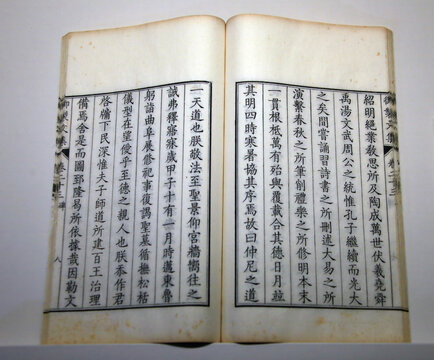 紹明絶業敎思所及陶成萬世伏羲堯舜
禹湯文武周公之統惟孔子繼續而光大
之矣間嘗誦習詩書之所刪述大易之所
演繫春秋之所筆削禮樂之所修明本末
一貫根柢萬有殆與覆載合其德日月竝
其明四時寒暑協其序焉故曰仲尼之道
一天道也朕敬法至聖景仰宮牆嚮往之
誠弗釋寤寐歲甲子十有一月時邁東魯
躬詣曲阜展修祀事復謁聖墓循撫松栝
儀型在望僾乎至德之親人也朕忝作君
啓牖下民深惟夫子師道所建百王治理
備焉舍是而圖郅隆易所依據哉因勒文
卷二十三 碑 八